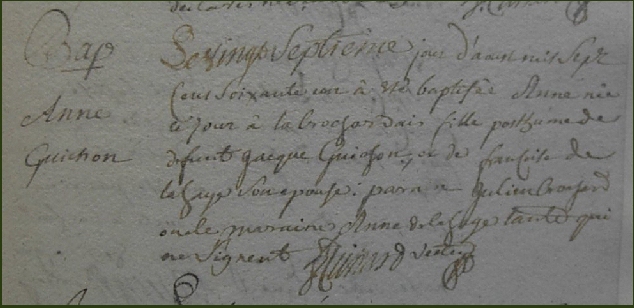 Bap
Anne
Guichon
Le vingt Septieme jour d'aout mil Sept
Cent Soixante un à été baptisée Anne née
ce jour à la brochardais fille posthume de
defunt jacque Guichon et de francoise de
la haye Son epouse: parain julien brochard
oncle maraine Anne de la haye tante qui
ne Signent